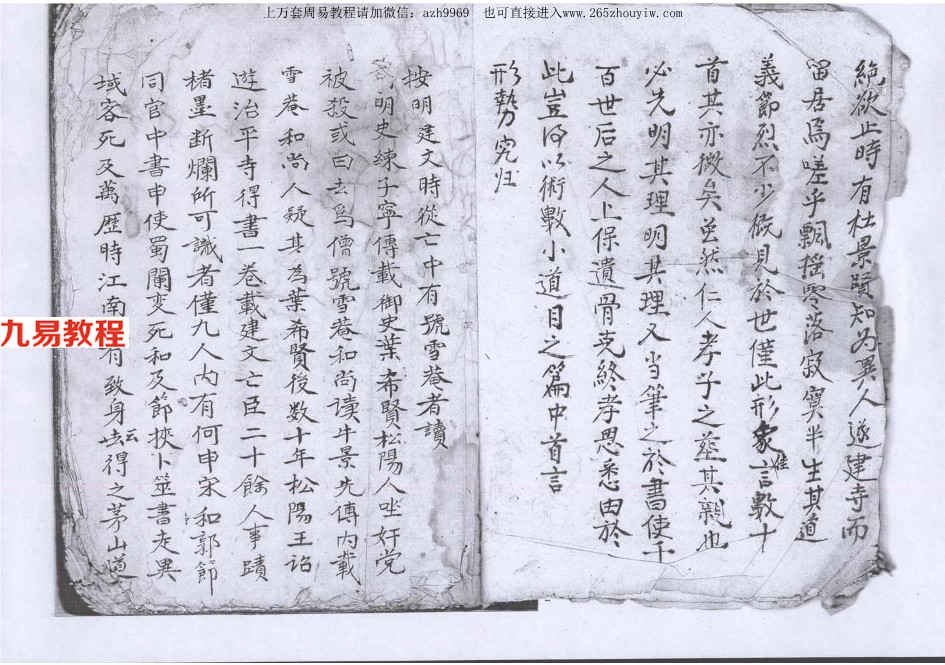 上万套周易教程请加微信：azh9969 也可直接进入www.265zhouyiw.com
絕欲止時有杜景賢知为異人遂建寺而
留居焉嗟乎飄摇零落寂寞半生其道
義節烈不少槪見於世僅此形象言數十
首其亦微矣虽然仁人孝子之葬其親也
必先明其理明其理又当筆之於書使千
百世后之人上保遺骨克終孝思悉由於
此豈可以術數小道目之篇中首言
形勢究归
按明建文時從亡中有號雪菴者讀
明史練子寧傳載御史葉希賢松陽人坐奸党
被殺或曰去爲僧號雪菴和尚讀牛景先傳内載
雪菴和尚人疑其為葉希賢後数十年松陽王诏
遊治平寺得書一卷載建文亡臣二十餘人事蹟
楮墨断爛所可識者僅九人内有何申宋和郭節
同官中書申使蜀闻变死和及節挾卜筮書走異
域客死及萬歴時江南有致身
云得之茅山道
九易教程